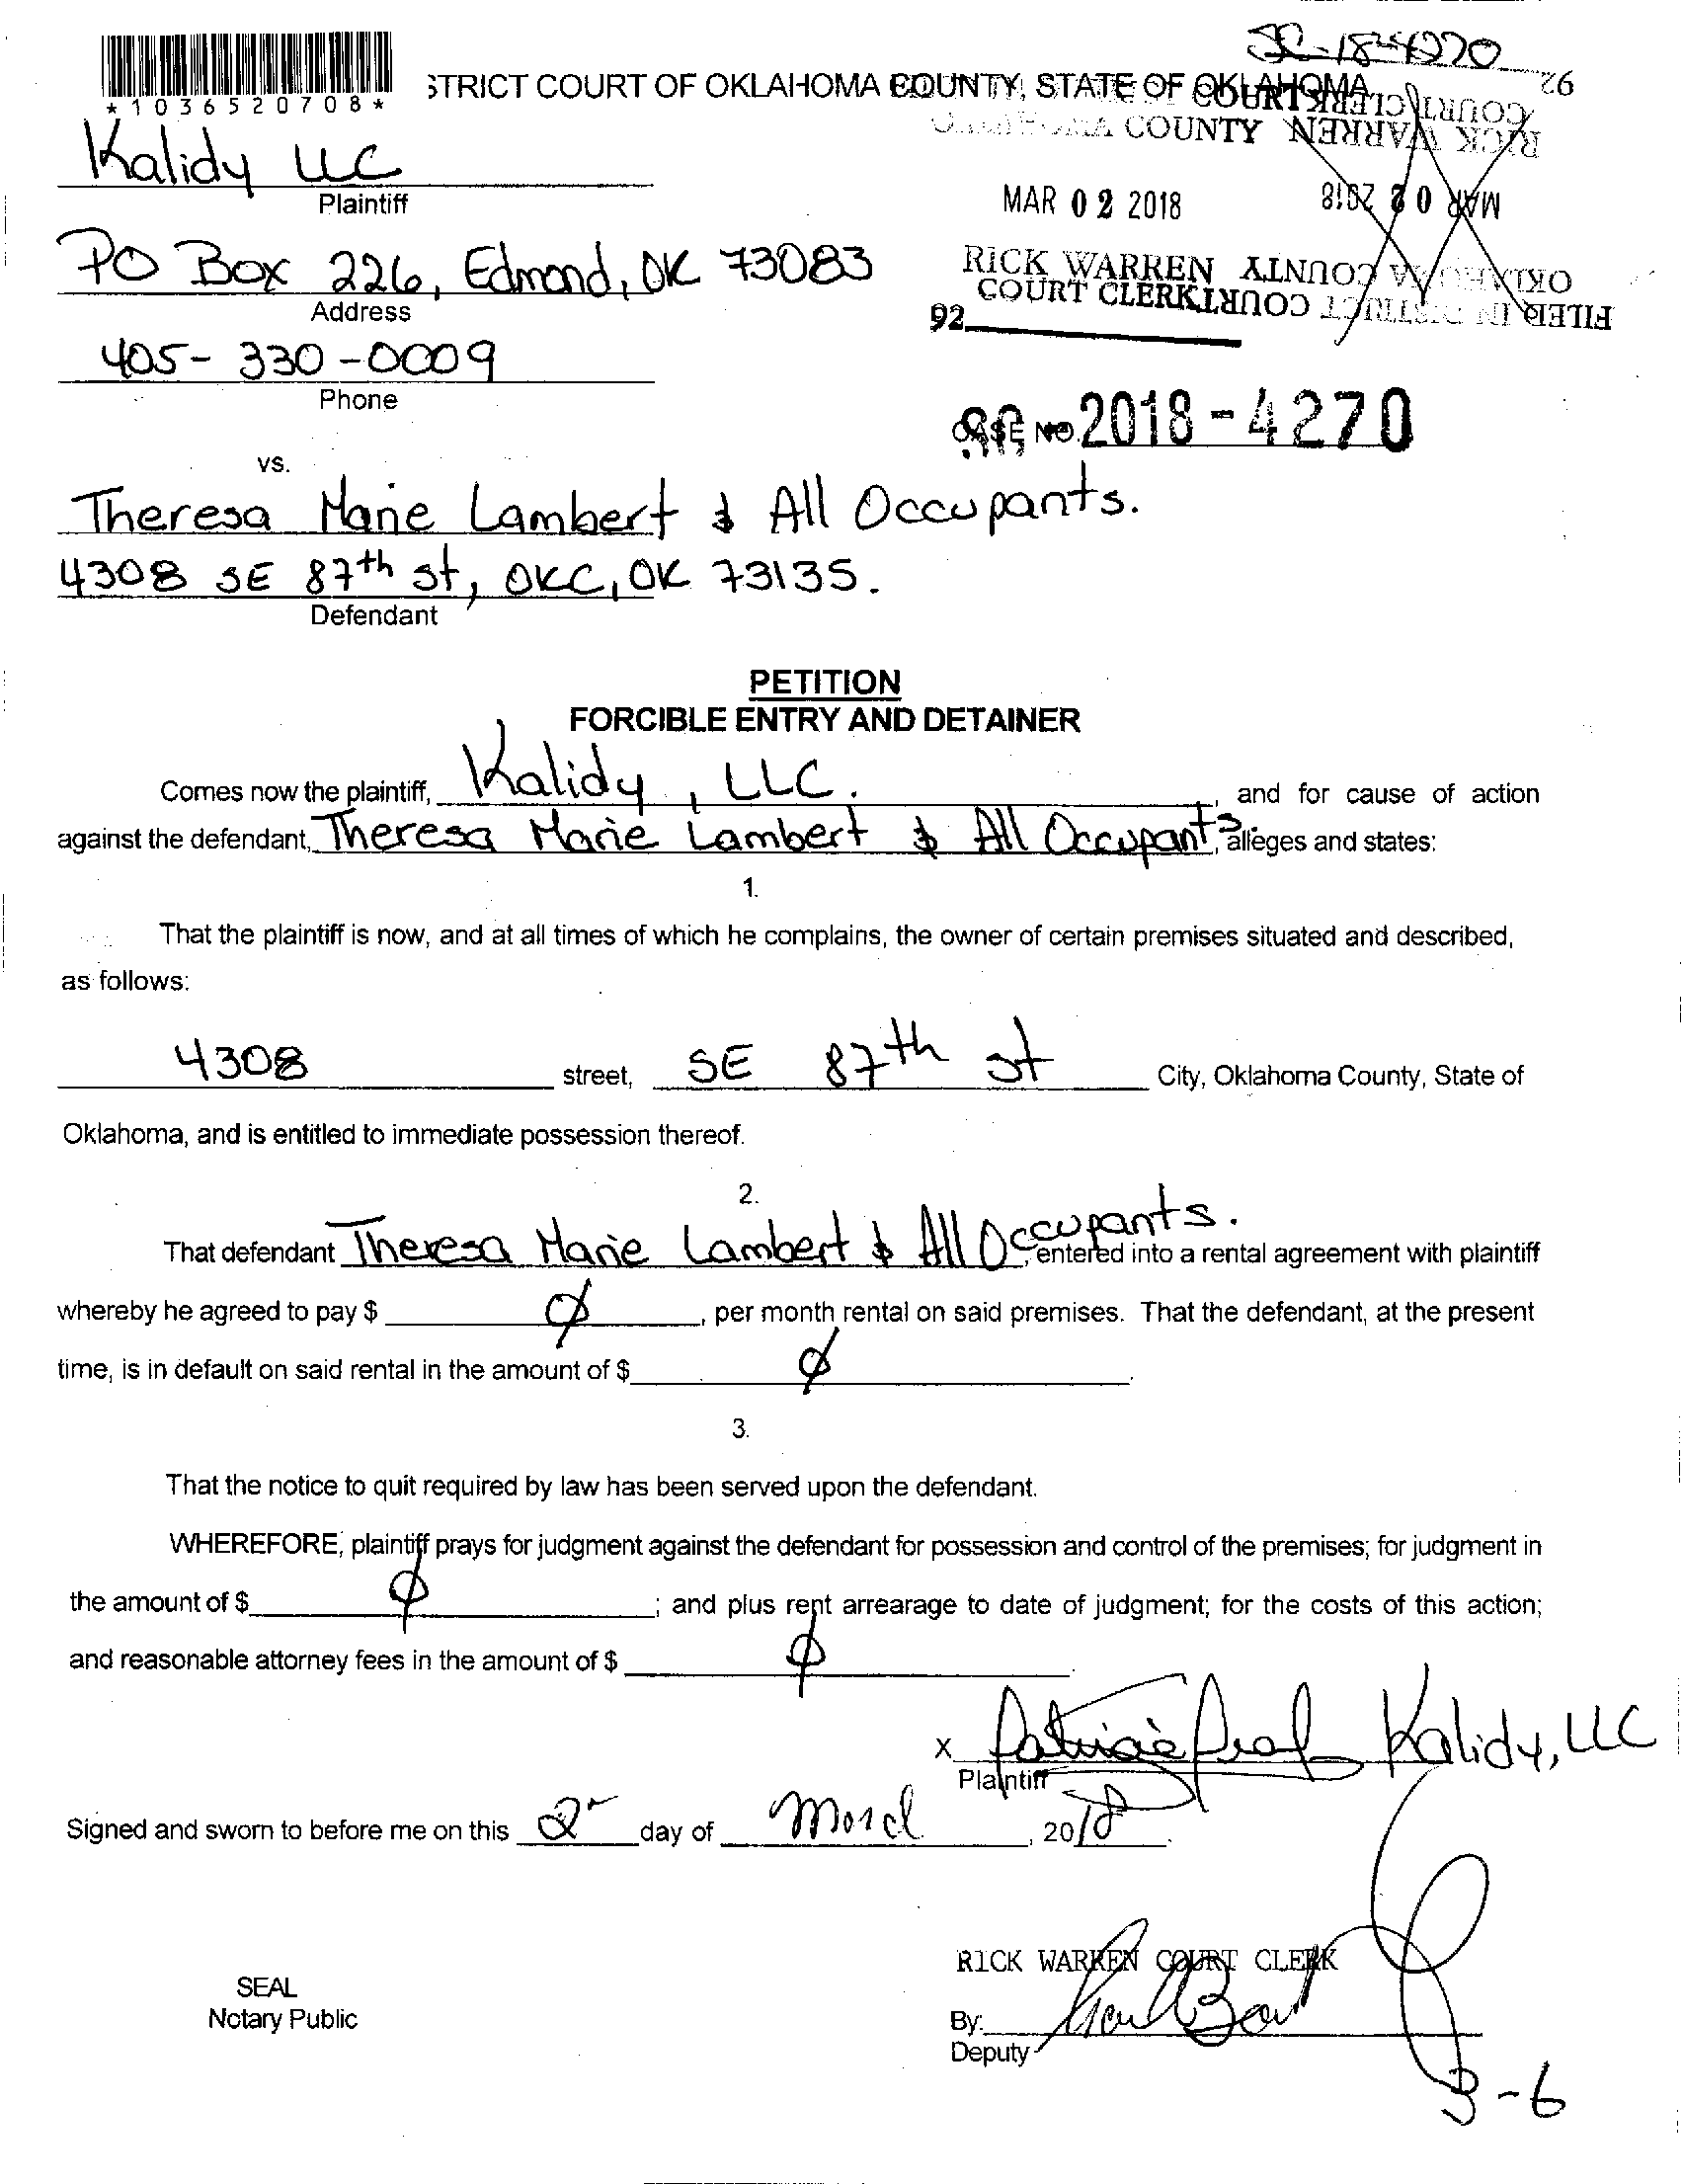 SC-18-4270
STRICT COURT OF OKLAHOMA COUNTY, STATE OF OKLAHOMA
*1036520708*
COURT CLERK
RICK WARREN
COUNTY
Kalidy LLC
Plaintiff
MAR 02 2018
MAR 02 2018
PO Box 226, Edmond, OK 73083
Address
RICK WARREN
COURT CLERK
OKLAHOMA COUNTY
FILED IN DISTRICT COURT
92
92
405-330-0009
Phone
CASE NO. 2018-4270
vs.
Theresa Marie Lambert & All Occupants.
4308 SE 87th st, OKC, OK 73135.
Defendant
PETITION
FORCIBLE ENTRY AND DETAINER
Comes now the plaintiff, Kalidy, LLC. and for cause of action
against the defendant, Theresa Marie Lambert & All Occupants, alleges and states:
1.
That the plaintiff is now, and at all times of which he complains, the owner of certain premises situated and described,
as follows:
4308 street, SE 87th st City, Oklahoma County, State of
Oklahoma, and is entitled to immediate possession thereof.
2.
That defendant Theresa Marie Lambert & All Occupants. , entered into a rental agreement with plaintiff
whereby he agreed to pay $ Ø , per month rental on said premises. That the defendant, at the present
time, is in default on said rental in the amount of $ Ø .
3.
That the notice to quit required by law has been served upon the defendant.
WHEREFORE, plaintiff prays for judgment against the defendant for possession and control of the premises; for judgment in
the amount of $ Ø ; and plus rent arrearage to date of judgment; for the costs of this action;
and reasonable attorney fees in the amount of $ Ø
X Kalidy, LLC
Plaintiff
Signed and sworn to before me on this 2 day of March, 2018.
RICK WARREN COURT CLERK
SEAL
Notary Public
By:
Deputy
3-6